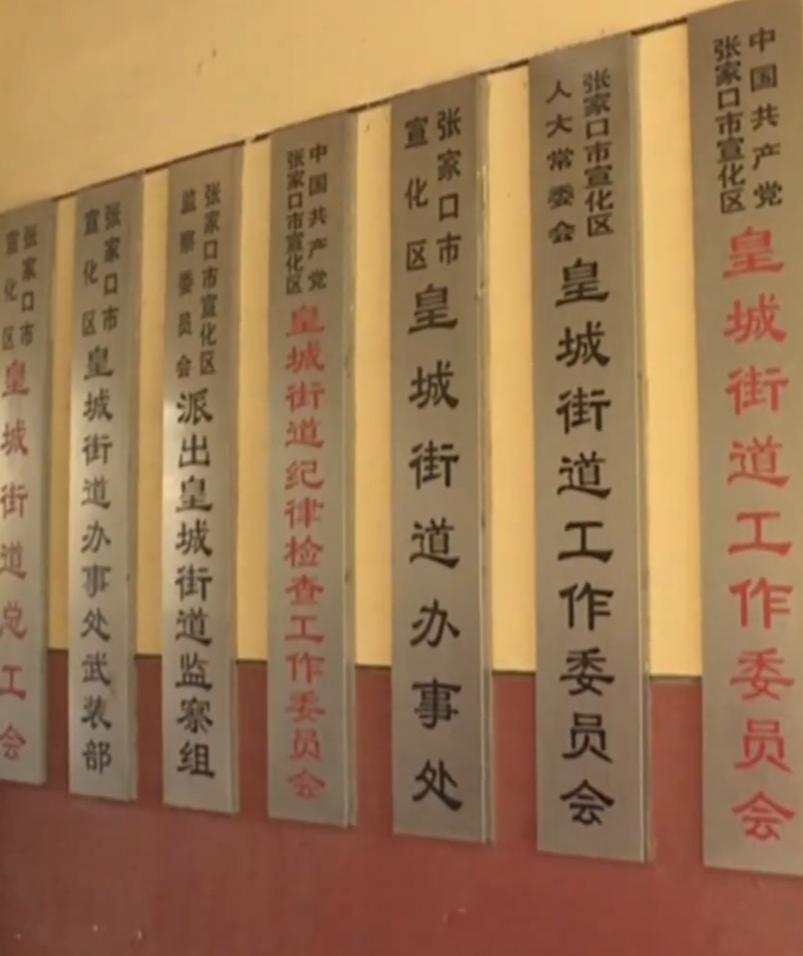 中国共产党
张家口市宣化区
皇城街道工作委员会
张家口市宣化区
人大常委会
皇城街道工作委员会
张家口市
宣化区
皇城街道办事处
中国共产党
张家口市宣化区
皇城街道纪律检查工作委员会
张家口市宣化区
监察委员会
派出皇城街道监察组
张家口市
宣化区
皇城街道办事处武装部
张家口市
宣化区
皇城街道总工会